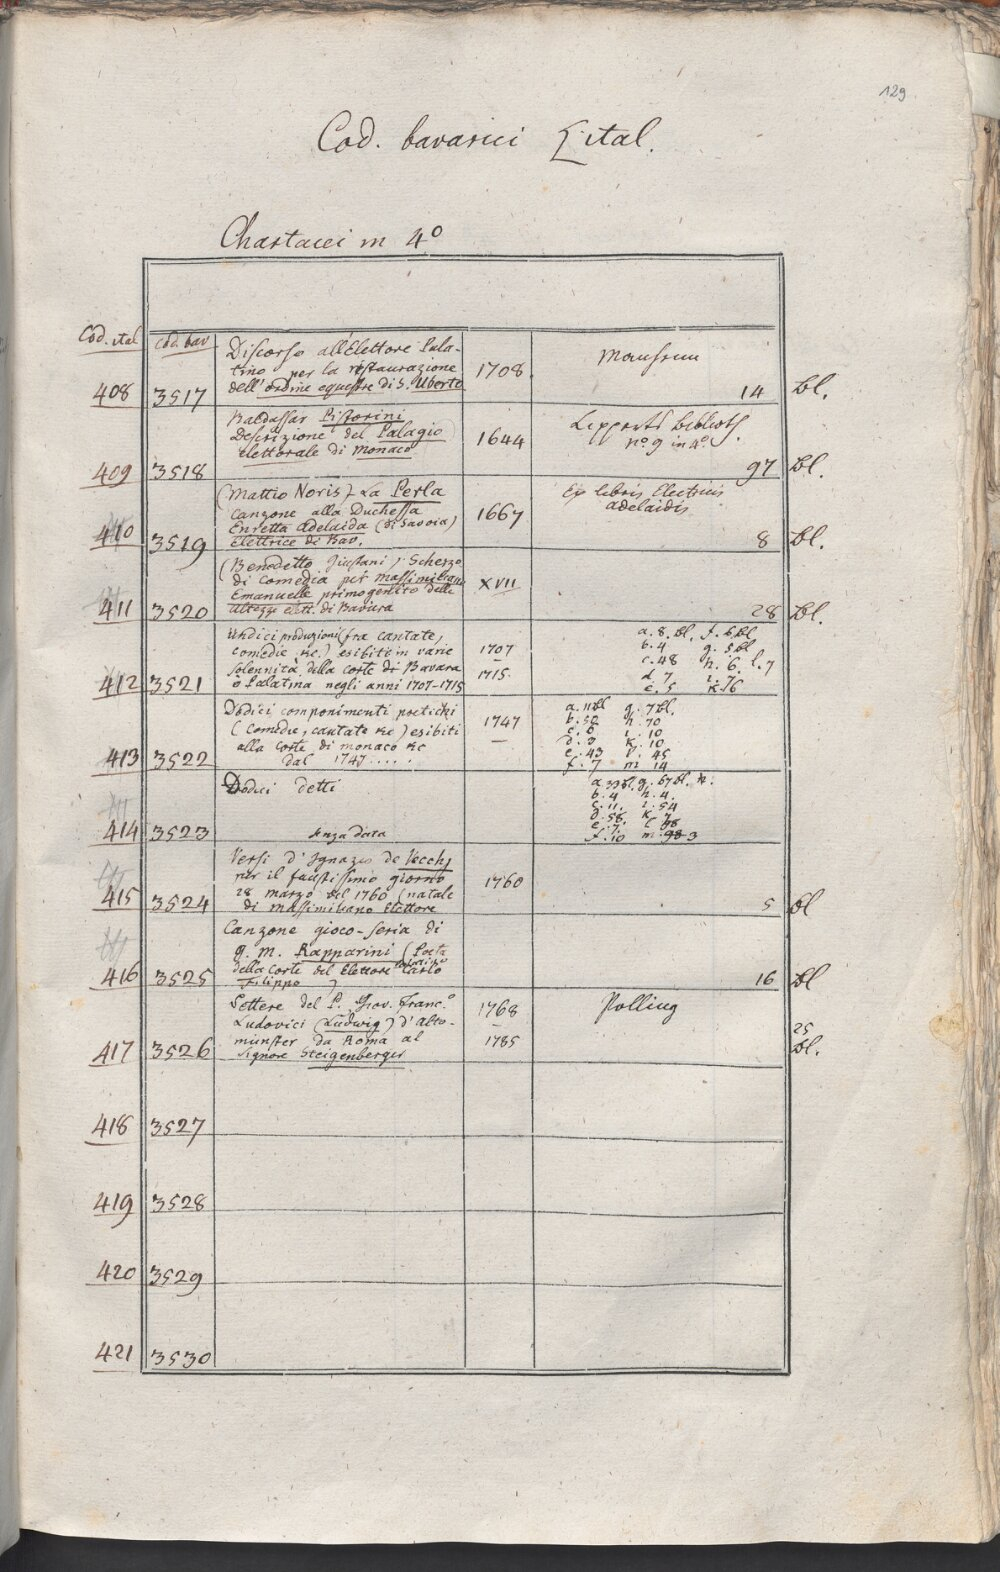 129
Cod. bavarici ital.
Chartacei in 4°
Cod. ital
Cod. bav
408
3517
Discorso all'Elettore Pala-
tino per la restaurazione
dell'ordine equestre di S. Uberto
1708
14 bl.
409
3518
Baldassar Pistorini
Descrizione del Palagio
elettorale di Monaco
1644
Lipperts Biblioth.
n° 9 in 4°.
97 bl.
410
3519
(Mattio Noris) La Perla
canzone alla Duchessa
Enretta Adelaida (di Savoia)
Elettrice di Bav.
1667
Ex libris Electricis
Adelaidis
8 bl.
411
3520
(Benedetto Giustani) Scherzo
di comedia per Massimiliano
Emanuelle primogenito delle
Altezze elett. di Baviera
XVII
28 bl.
412
3521
Undici produzioni (fra cantate,
comedie &c.) esibite in varie
solennità della corte di Bavara
o Palatina negli anni 1707-1715
1707
1715.
a. 8. bl. f. 6 bl
b. 4 g. 5 bl
c. 48 h. 6. l. 7
d 7 i. 76
e. 5 k. 16
413
3522
Dodici componimenti poetichi
(comedie, cantate &c) esibiti
alla corte di monaco &c
dal 1747 . . . . .
1747
a. 11 bl g. 7 bl.
b. 50 h. 70
c. 6 i. 10
d. 3 k. 10
e. 43 l. 45
f. 7 m 14
414
3523
Dodici detti
senza data
a. 33 bl. g. 67 bl.
b. 4 h. 4.
c. 11. i. 54
d. 58. k. 7
e. 7. l. 58
f. 10 m. 98 3
415
3524
Versi d'Ignazio de Vecchj
per il faustissimo giorno
28 marzo del 1760 (natale
di Massimiliano Elettore
1760
5 bl
416
3525
Canzone gioco-seria di
G. M. Rapparini (Poeta
della Corte del Elettore palatino Carlo
Filippo)
16 bl
417
3526
Lettere del P. Giov. Franc.°
Ludovici (Ludwig) d'Alto-
münster da Roma al
Signore Steigenberger
1768
1785
Polling
25
bl.
418
3527
419
3528
420
3529
421
3530